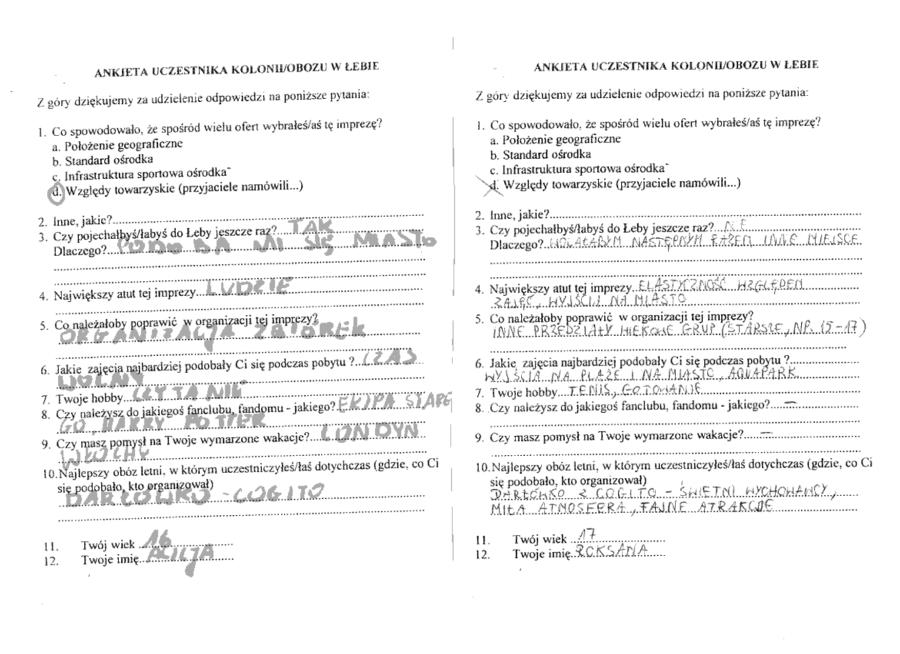 ANKIETA UCZESTNIKA KOLONII/OBOZU W ŁEBIE
Z góry dziękujemy za udzielenie odpowiedzi na poniższe pytania:
1. Co spowodowało, że spośród wielu ofert wybrałeś/aś tę imprezę?
a. Położenie geograficzne
b. Standard ośrodka
c. Infrastruktura sportowa ośrodka
d. Względy towarzyskie (przyjaciele namówili...)
2. Inne, jakie?
3. Czy pojechałbyś/łabyś do Łeby jeszcze raz? TAK
Dlaczego? PODOBA MI SIĘ MIASTO
4. Największy atut tej imprezy LUDZIE
5. Co należałoby poprawić w organizacji tej imprezy?
ORGANIZACJA ZBIÓREK
6. Jakie zajęcia najbardziej podobały Ci się podczas pobytu ? CZAS
WOLNY
7. Twoje hobby CZYTANIE
8. Czy należysz do jakiegoś fanclubu, fandomu - jakiego? EKIPA STARE
GO, HARRY POTTER
9. Czy masz pomysł na Twoje wymarzone wakacje? LONDYN
WŁOCHY
10. Najlepszy obóz letni, w którym uczestniczyłeś/łaś dotychczas (gdzie, co Ci
się podobało, kto organizował)
DARŁOWKO - COGITO
11. Twój wiek 16
12. Twoje imię ALICJA
ANKIETA UCZESTNIKA KOLONII/OBOZU W ŁEBIE
Z góry dziękujemy za udzielenie odpowiedzi na poniższe pytania:
1. Co spowodowało, że spośród wielu ofert wybrałeś/aś tę imprezę?
a. Położenie geograficzne
b. Standard ośrodka
c. Infrastruktura sportowa ośrodka
d. Względy towarzyskie (przyjaciele namówili...)
2. Inne, jakie?
3. Czy pojechałbyś/łabyś do Łeby jeszcze raz? NIE
Dlaczego? WOLAŁABYM NASTĘPNYM RAZEM INNE MIEJSCE
4. Największy atut tej imprezy ELASTYCZNOŚĆ WZGLĘDEM
ZAJĘĆ, WYJŚCIJ NA MIASTO
5. Co należałoby poprawić w organizacji tej imprezy?
INNE PRZEDZIAŁY WIEKOWE GRUP (STARSZE, NP. 15-17)
6. Jakie zajęcia najbardziej podobały Ci się podczas pobytu ?
WYJŚCIA NA PLAŻE I NA MIASTO, AQUAPARK
7. Twoje hobby TENIS, GOTOWANIE
8. Czy należysz do jakiegoś fanclubu, fandomu - jakiego? —
9. Czy masz pomysł na Twoje wymarzone wakacje? —
10. Najlepszy obóz letni, w którym uczestniczyłeś/łaś dotychczas (gdzie, co Ci
się podobało, kto organizował)
DARŁÓWKO Z COGITO - ŚWIETNI WYCHOWAWCY,
MIŁA ATMOSFERA, FAJNE ATRAKCJE
11. Twój wiek 17
12. Twoje imię ROKSANA